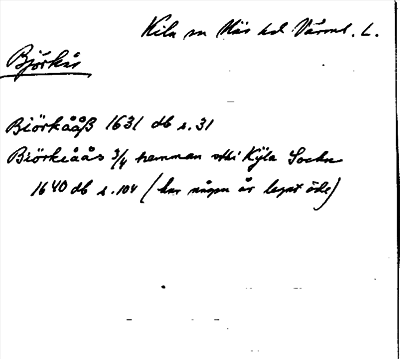 Kila sn Näs hd Värml. L.
Björkås
Biörkååß 1631 db s. 31
Biörkeåås 3/4 hemman vthi Kÿla Sochn
1640 db s. 104 (har någon år legat öde)